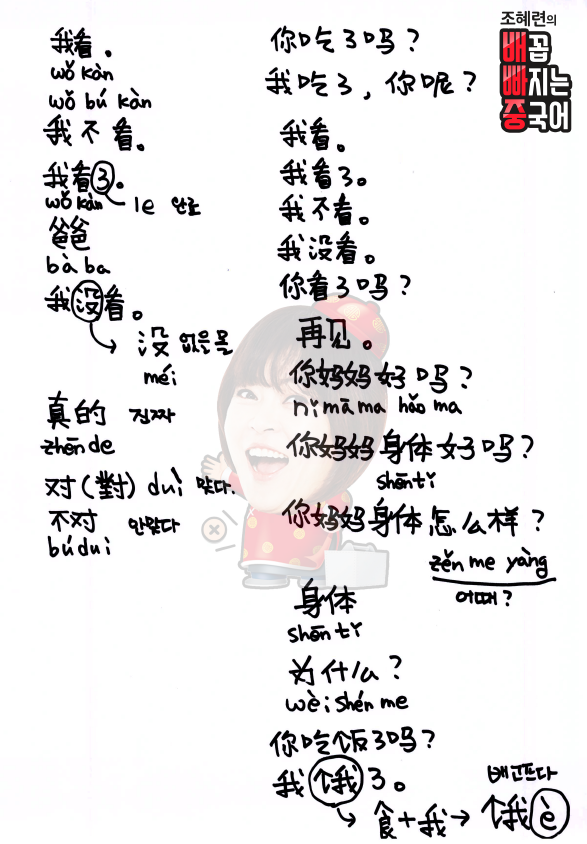 조혜련의
배꼽
빠지는
중국어
我看。
wǒ kàn
wǒ bú kàn
我不看。
我看了。
wǒ kàn le 완료
爸爸
bà ba
我没看。
没 없을 몰
méi
真的 진짜
zhēn de
对(對) duì 맞다.
不对 안맞다
bú duì
你吃了吗?
我吃了, 你呢?
我看。
我看了。
我不看。
我没看。
你看了吗?
再见。
你妈妈好吗?
nǐ mā ma hǎo ma
你妈妈身体好吗?
shēn tǐ
你妈妈身体怎么样?
zěn me yàng
어때?
身体
shēn tǐ
为什么?
wèi shén me
你吃饭了吗?
我饿了。
배고프다
食+我→饿 è